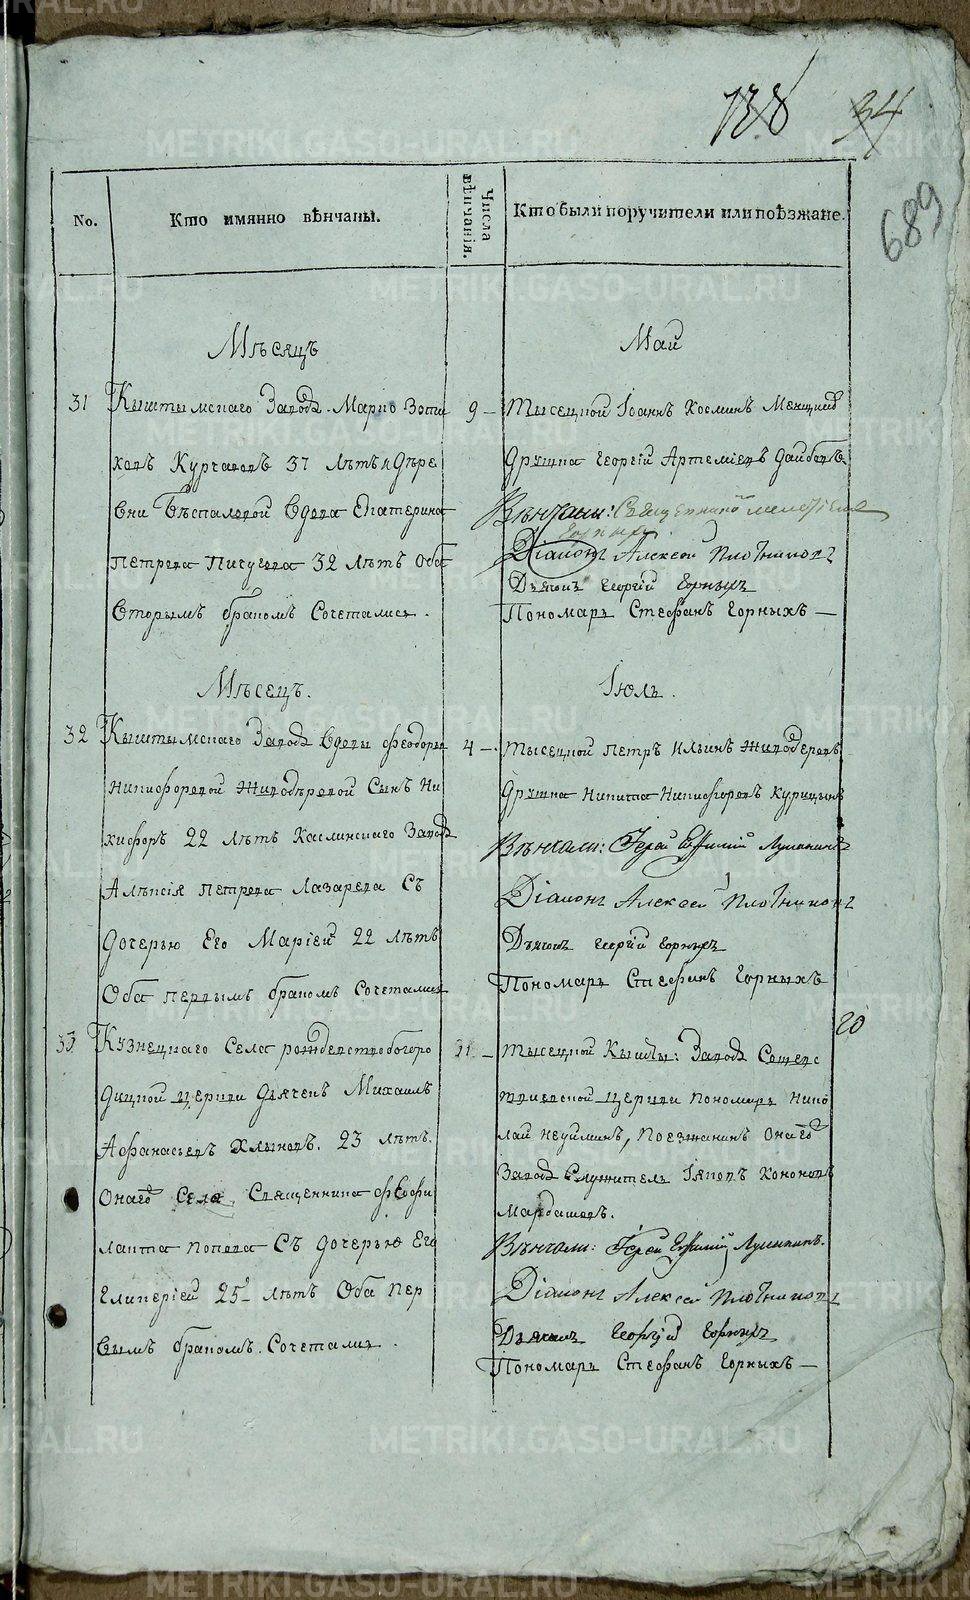 138 34
689
No.
Кто имянно вѣнчаны.
Числа вѣнчанія.
Кто были поручители или поѣзжане.
Мѣсяцъ
Май
31 Кыштымскаго Завода Марко Зоти
ховъ Курчатовъ 37 лѣтъ и Дере
вни вдова Екатерина
Петрова Пичугова 32 лѣтъ Оба
Вторымъ бракомъ Сочетались.
9 – Тысецкой Іоаннъ Косминъ
Дружка Георгій Артеміевъ
Вѣнчали: Священникъ
Діаконъ Алексей Плотниковъ
Дьячокъ Георгій Горныхъ
Пономарь Стефанъ Горныхъ —
Мѣсецъ.
Іюль.
32 Кыштымскаго Завода Вдовы Феодоры
Никифоровой Жиподѣровой Сынъ Ни
кифоръ 22 лѣтъ Каслинскаго Завода
Алексія Петрова Лазарева Съ
Дочерью Его Маріей 22 лѣтъ
Оба первымъ бракомъ Сочетались
4 – Тысецкой Петръ Ильинъ Жиподеровъ
Дружка Никита Никифоровъ Курицынъ
Вѣнчали: Іерей Евфимій
Діаконъ Алексей Плотниковъ
Дьячокъ Георгій Горныхъ
Пономарь Стефанъ Горныхъ
20
33 Кузнецкаго Села рождествобогоро
дицкой церкви Дьячекъ Михаилъ
Афанасьевъ Хлыновъ. 23 лѣтъ.
Онаго Села Священника Феофи
лакта Попова Съ Дочерью Его
Гликеріей 25 лѣтъ Оба пер
вымъ бракомъ Сочетались.
31 – Тысецкой Кышты: Завода Сошесо
твіевской церкви пономарь Нико
лай Неуйминъ, Поезжанинъ Онаго
Завода Служитель Іаковъ Кононовъ
Мардашовъ.
Вѣнчали: Іерей Евфимій
Діаконъ Алексей Плотниковъ
Дьячокъ Георгій Горныхъ
Пономарь Стефанъ Горныхъ —
METRIKI.GASO-URAL.RU